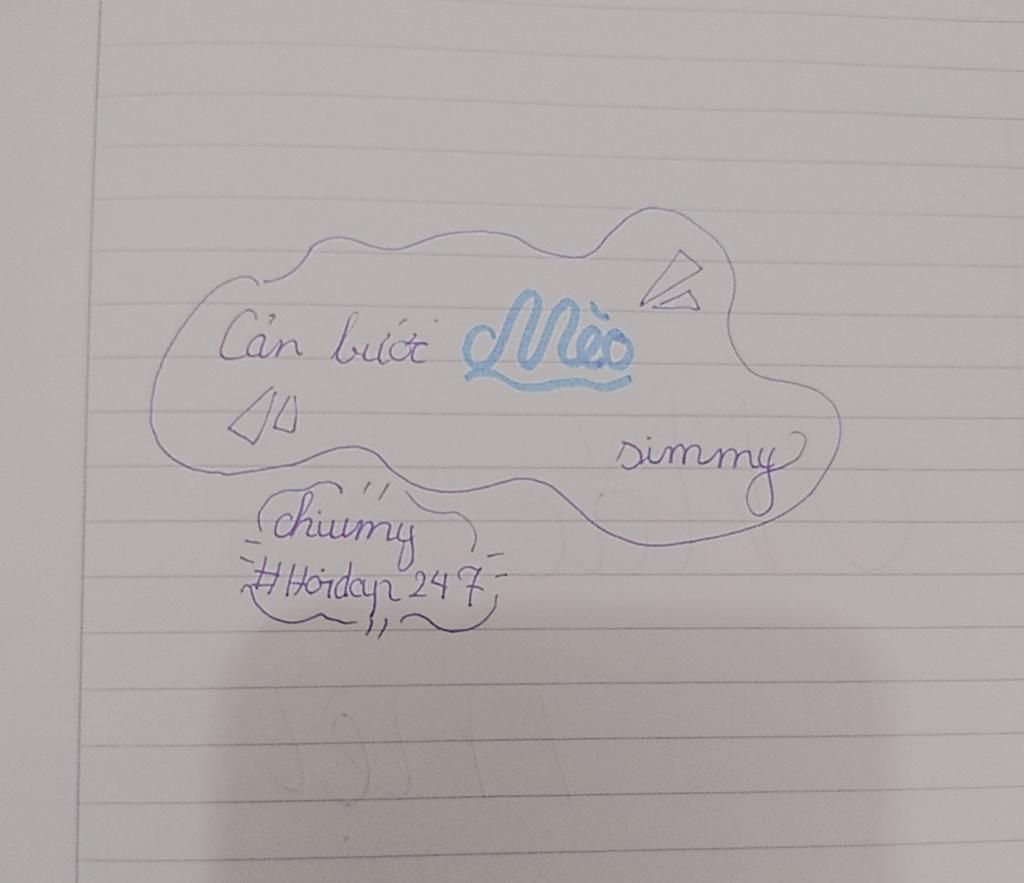 Cản bước Mèo
simmy
chiumy
#Hoidap247